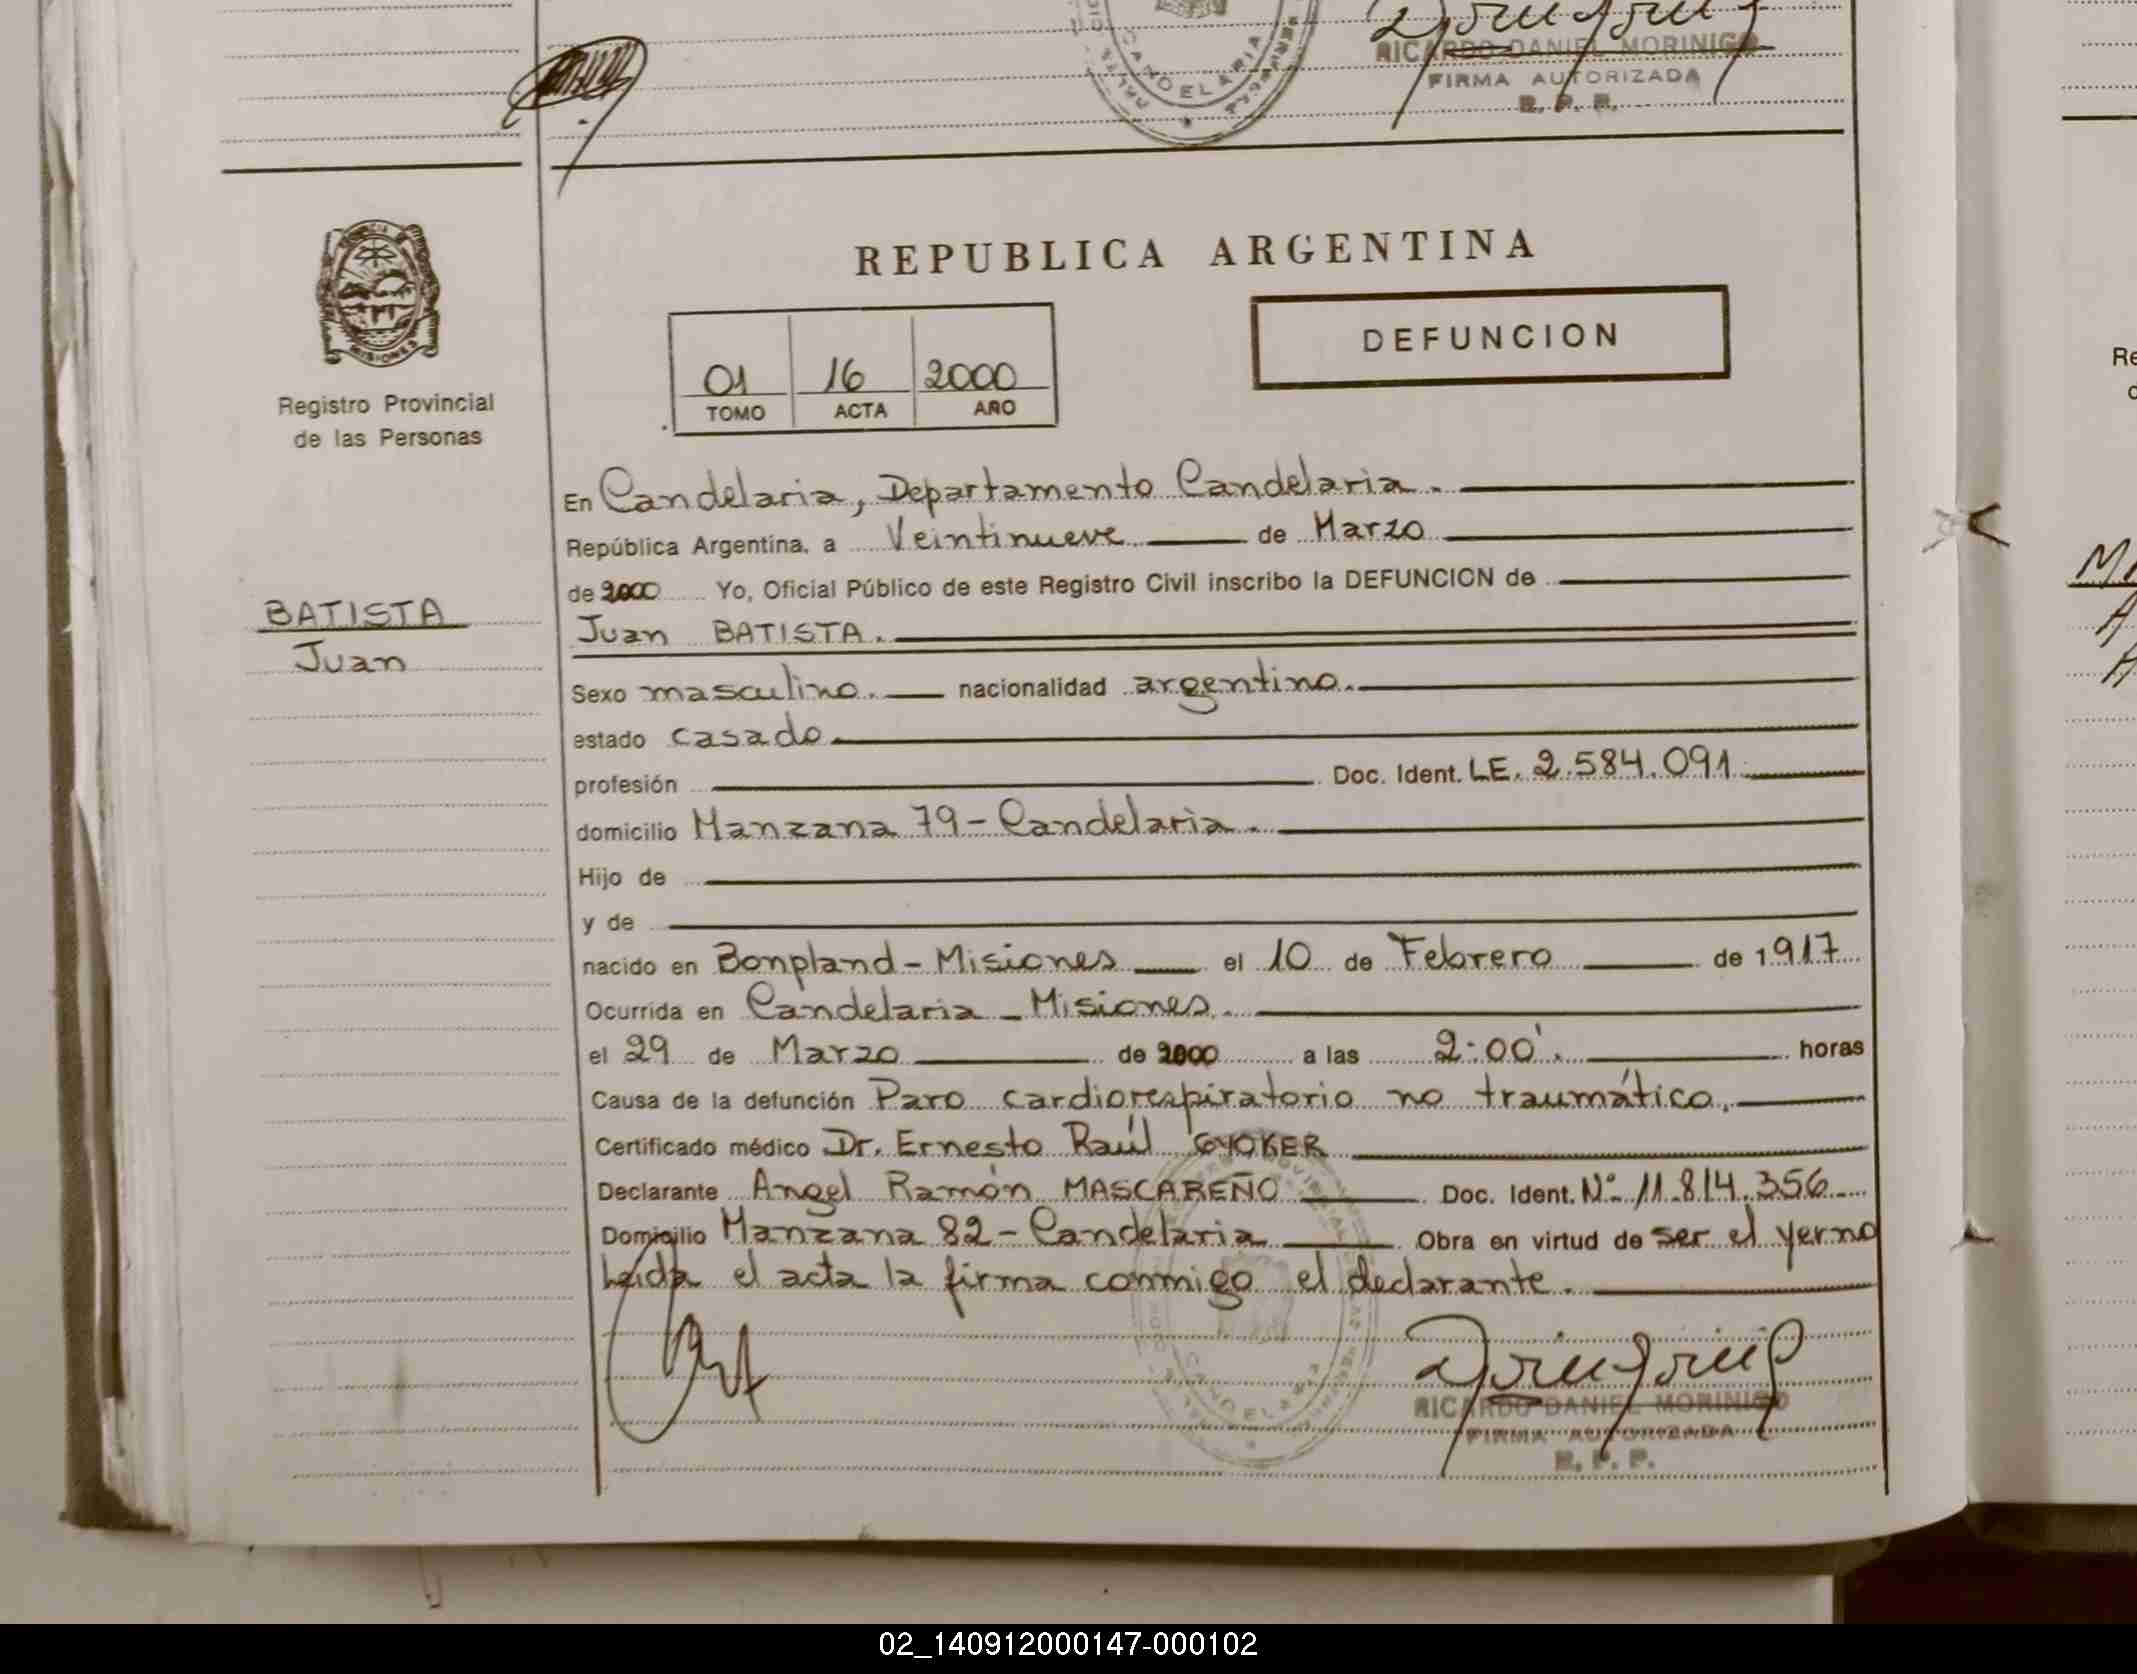 RICARDO DANIEL MORINIGO
FIRMA AUTORIZADA
R. P. P.
CANDELARIA
MISIONES
Registro Provincial
de las Personas
BATISTA
Juan
REPUBLICA ARGENTINA
01 16 2000
TOMO ACTA AÑO
DEFUNCION
En Candelaria, Departamento Candelaria.
República Argentina, a Veintinueve de Marzo
de 2000 Yo, Oficial Público de este Registro Civil inscribo la DEFUNCION de
Juan BATISTA.
Sexo masculino. nacionalidad argentino.
estado casado
profesión Doc. Ident. LE. 2.584.091
domicilio Manzana 79 - Candelaria.
Hijo de
y de
nacido en Bonpland - Misiones el 10 de Febrero de 1917
Ocurrida en Candelaria - Misiones.
el 29 de Marzo de 2000 a las 2:00'. horas
Causa de la defunción Paro cardiorespiratorio no traumático.
Certificado médico Dr. Ernesto Raúl GYOKER
Declarante Angel Ramón MASCAREÑO Doc. Ident. Nº 11.814.356
Domicilio Manzana 82 - Candelaria Obra en virtud de ser el yerno
Leida el acta la firma conmigo el declarante.
CANDELARIA
RICARDO DANIEL MORINIGO
FIRMA AUTORIZADA
R. P. P.
Re
02_140912000147-000102